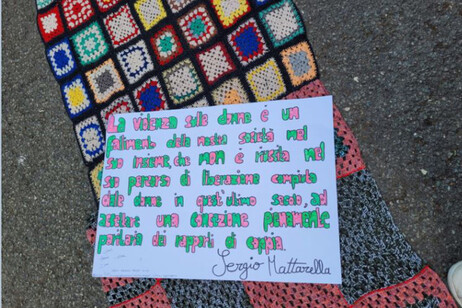 LA violenza sulle donne è un
fallimento della nostra società nel
suo insieme, che non è riuscita nel
suo percorso di liberazione compiuto
dalle donne in quest'ultimo secolo, ad
accettare una concezione pienamente
paritaria dei rapporti di coppia.
Sergio Mattarella